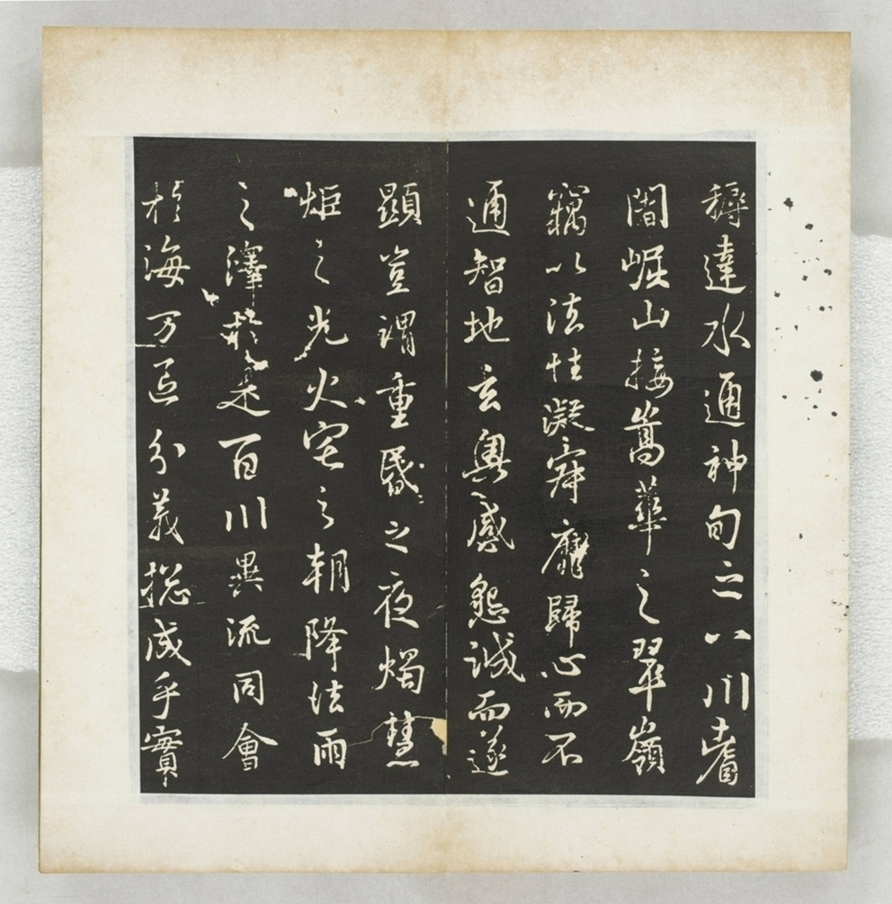 耨達水通神甸之八川耆
闍崛山接嵩華之翠嶺
竊以法性凝寂靡歸心而不
通智地玄奧感懇誠而遂
顯豈謂重昏之夜燭慧
炬之光火宅之朝降法雨
之澤於是百川異流同會
於海万區分義揔成乎實